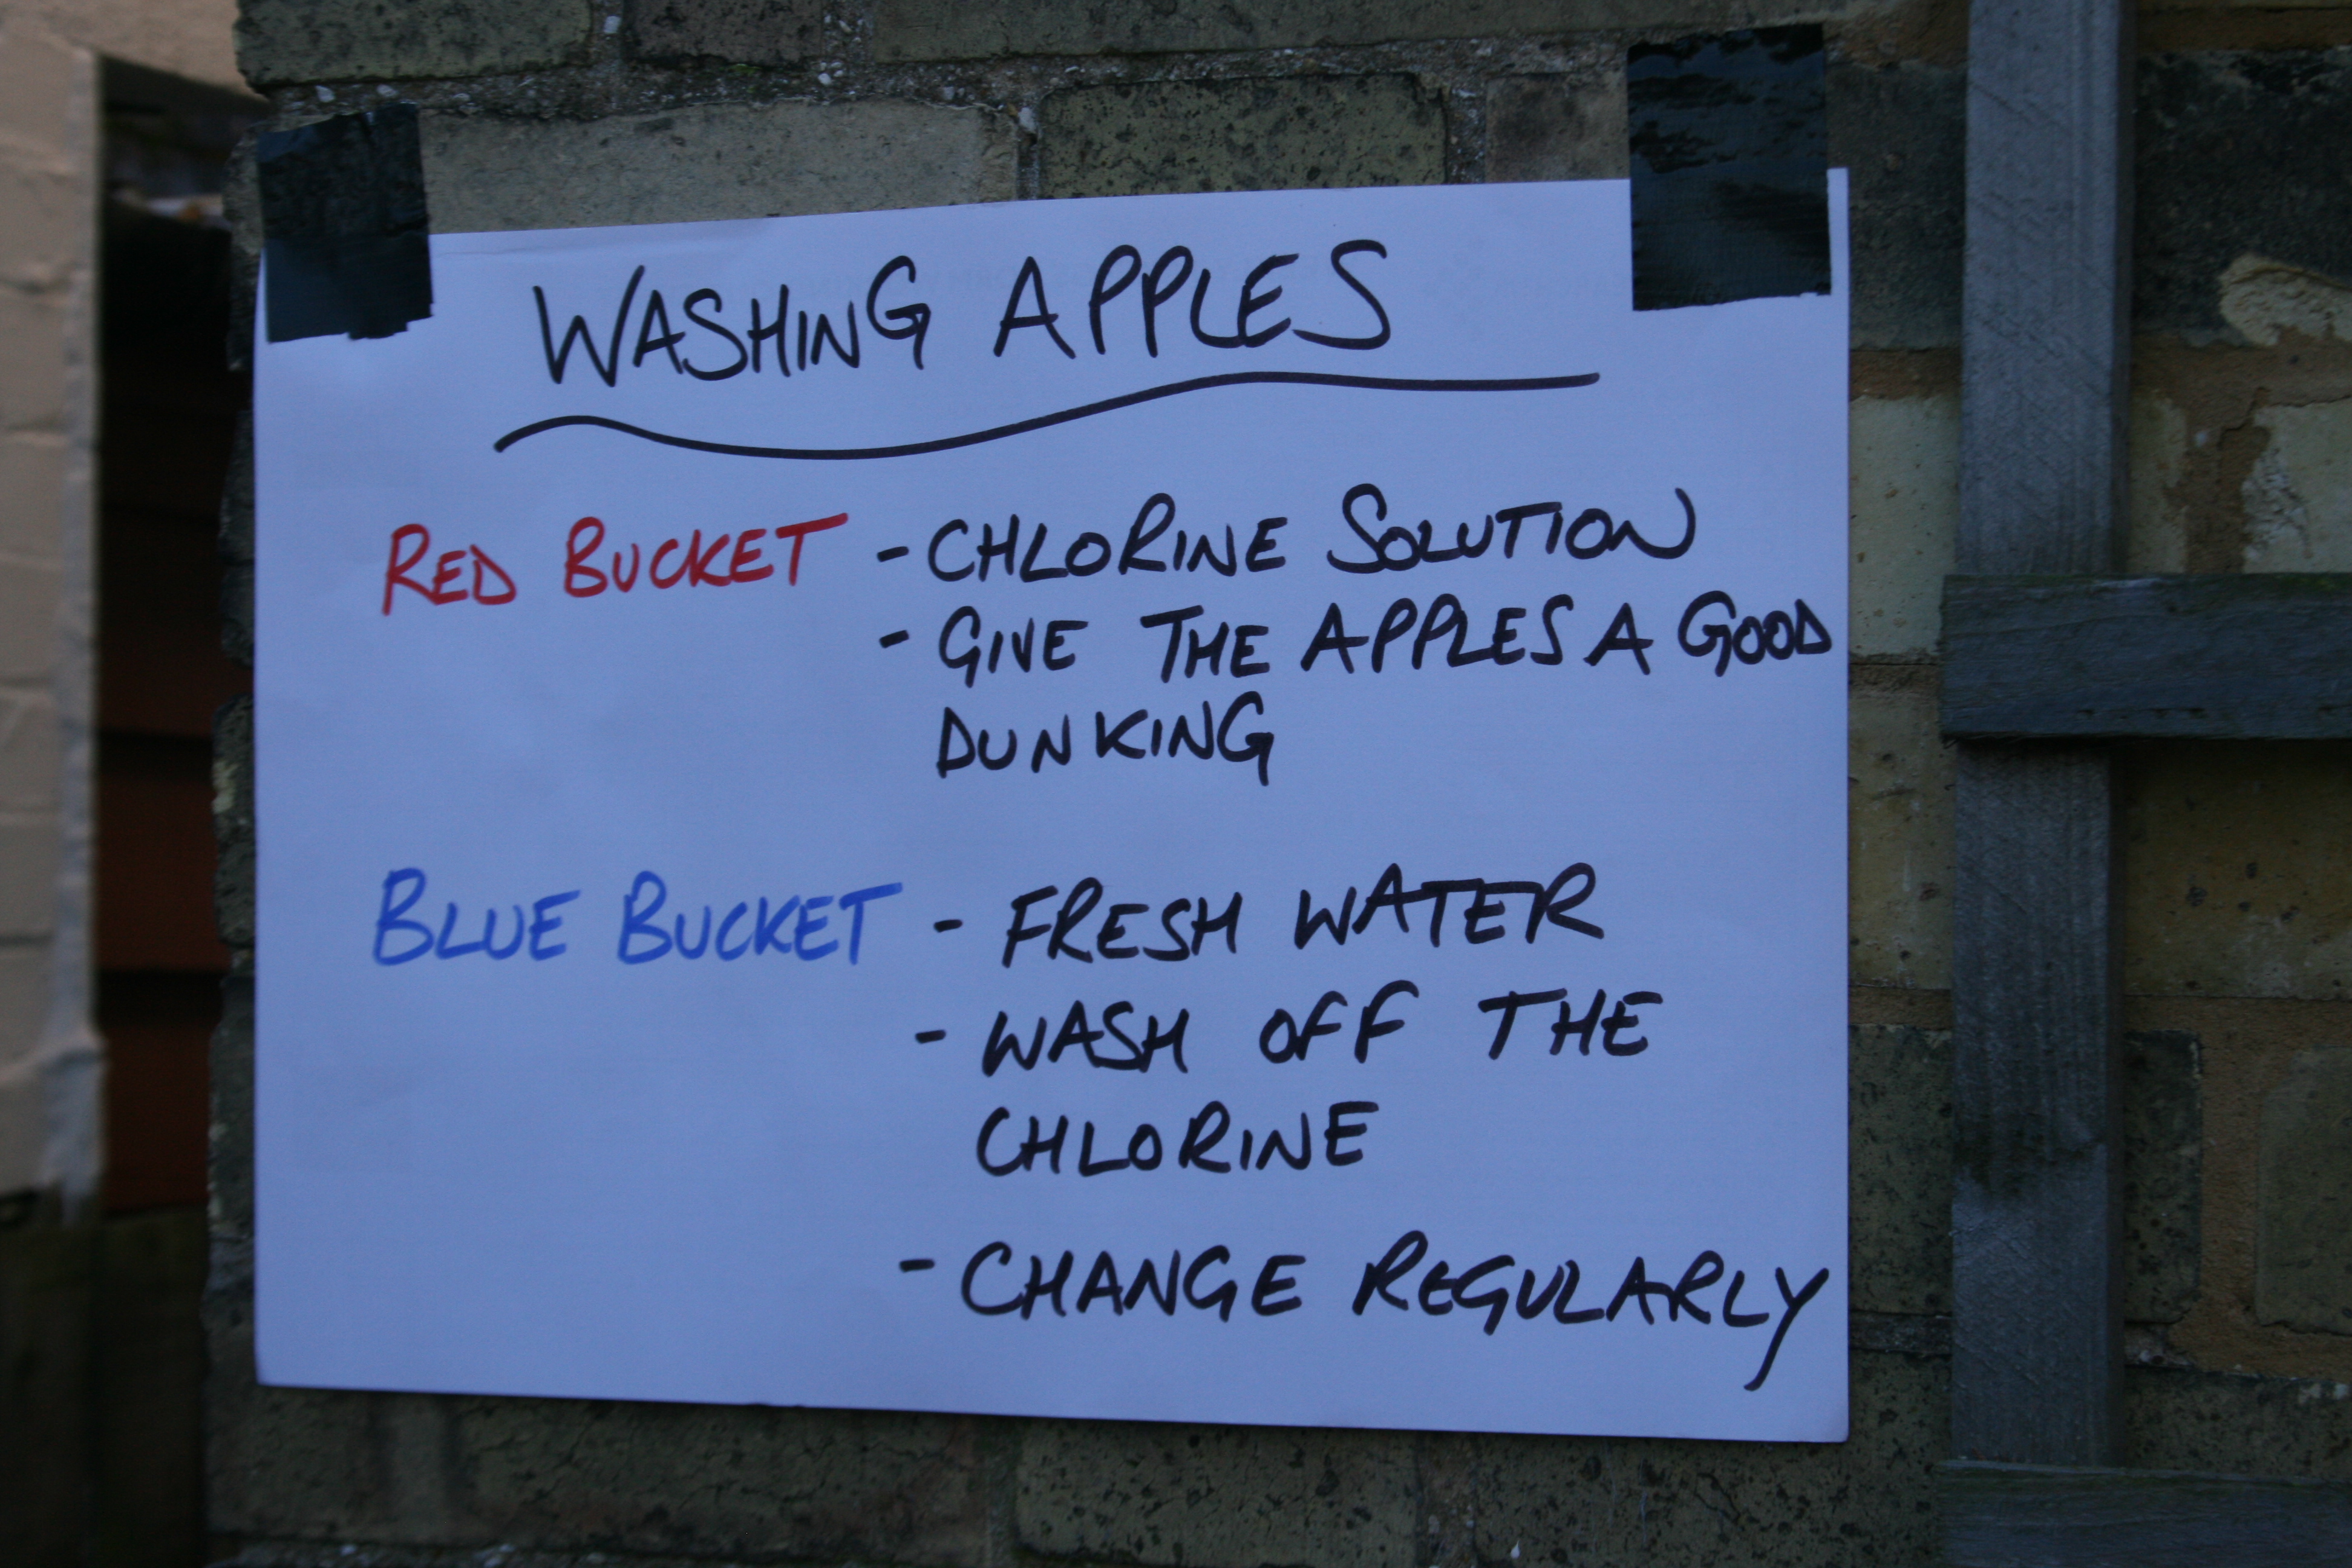 WASHING APPLES
RED BUCKET - CHLORINE SOLUTION
- GIVE THE APPLES A GOOD
DUNKING
BLUE BUCKET - FRESH WATER
- WASH OFF THE
CHLORINE
- CHANGE REGULARLY